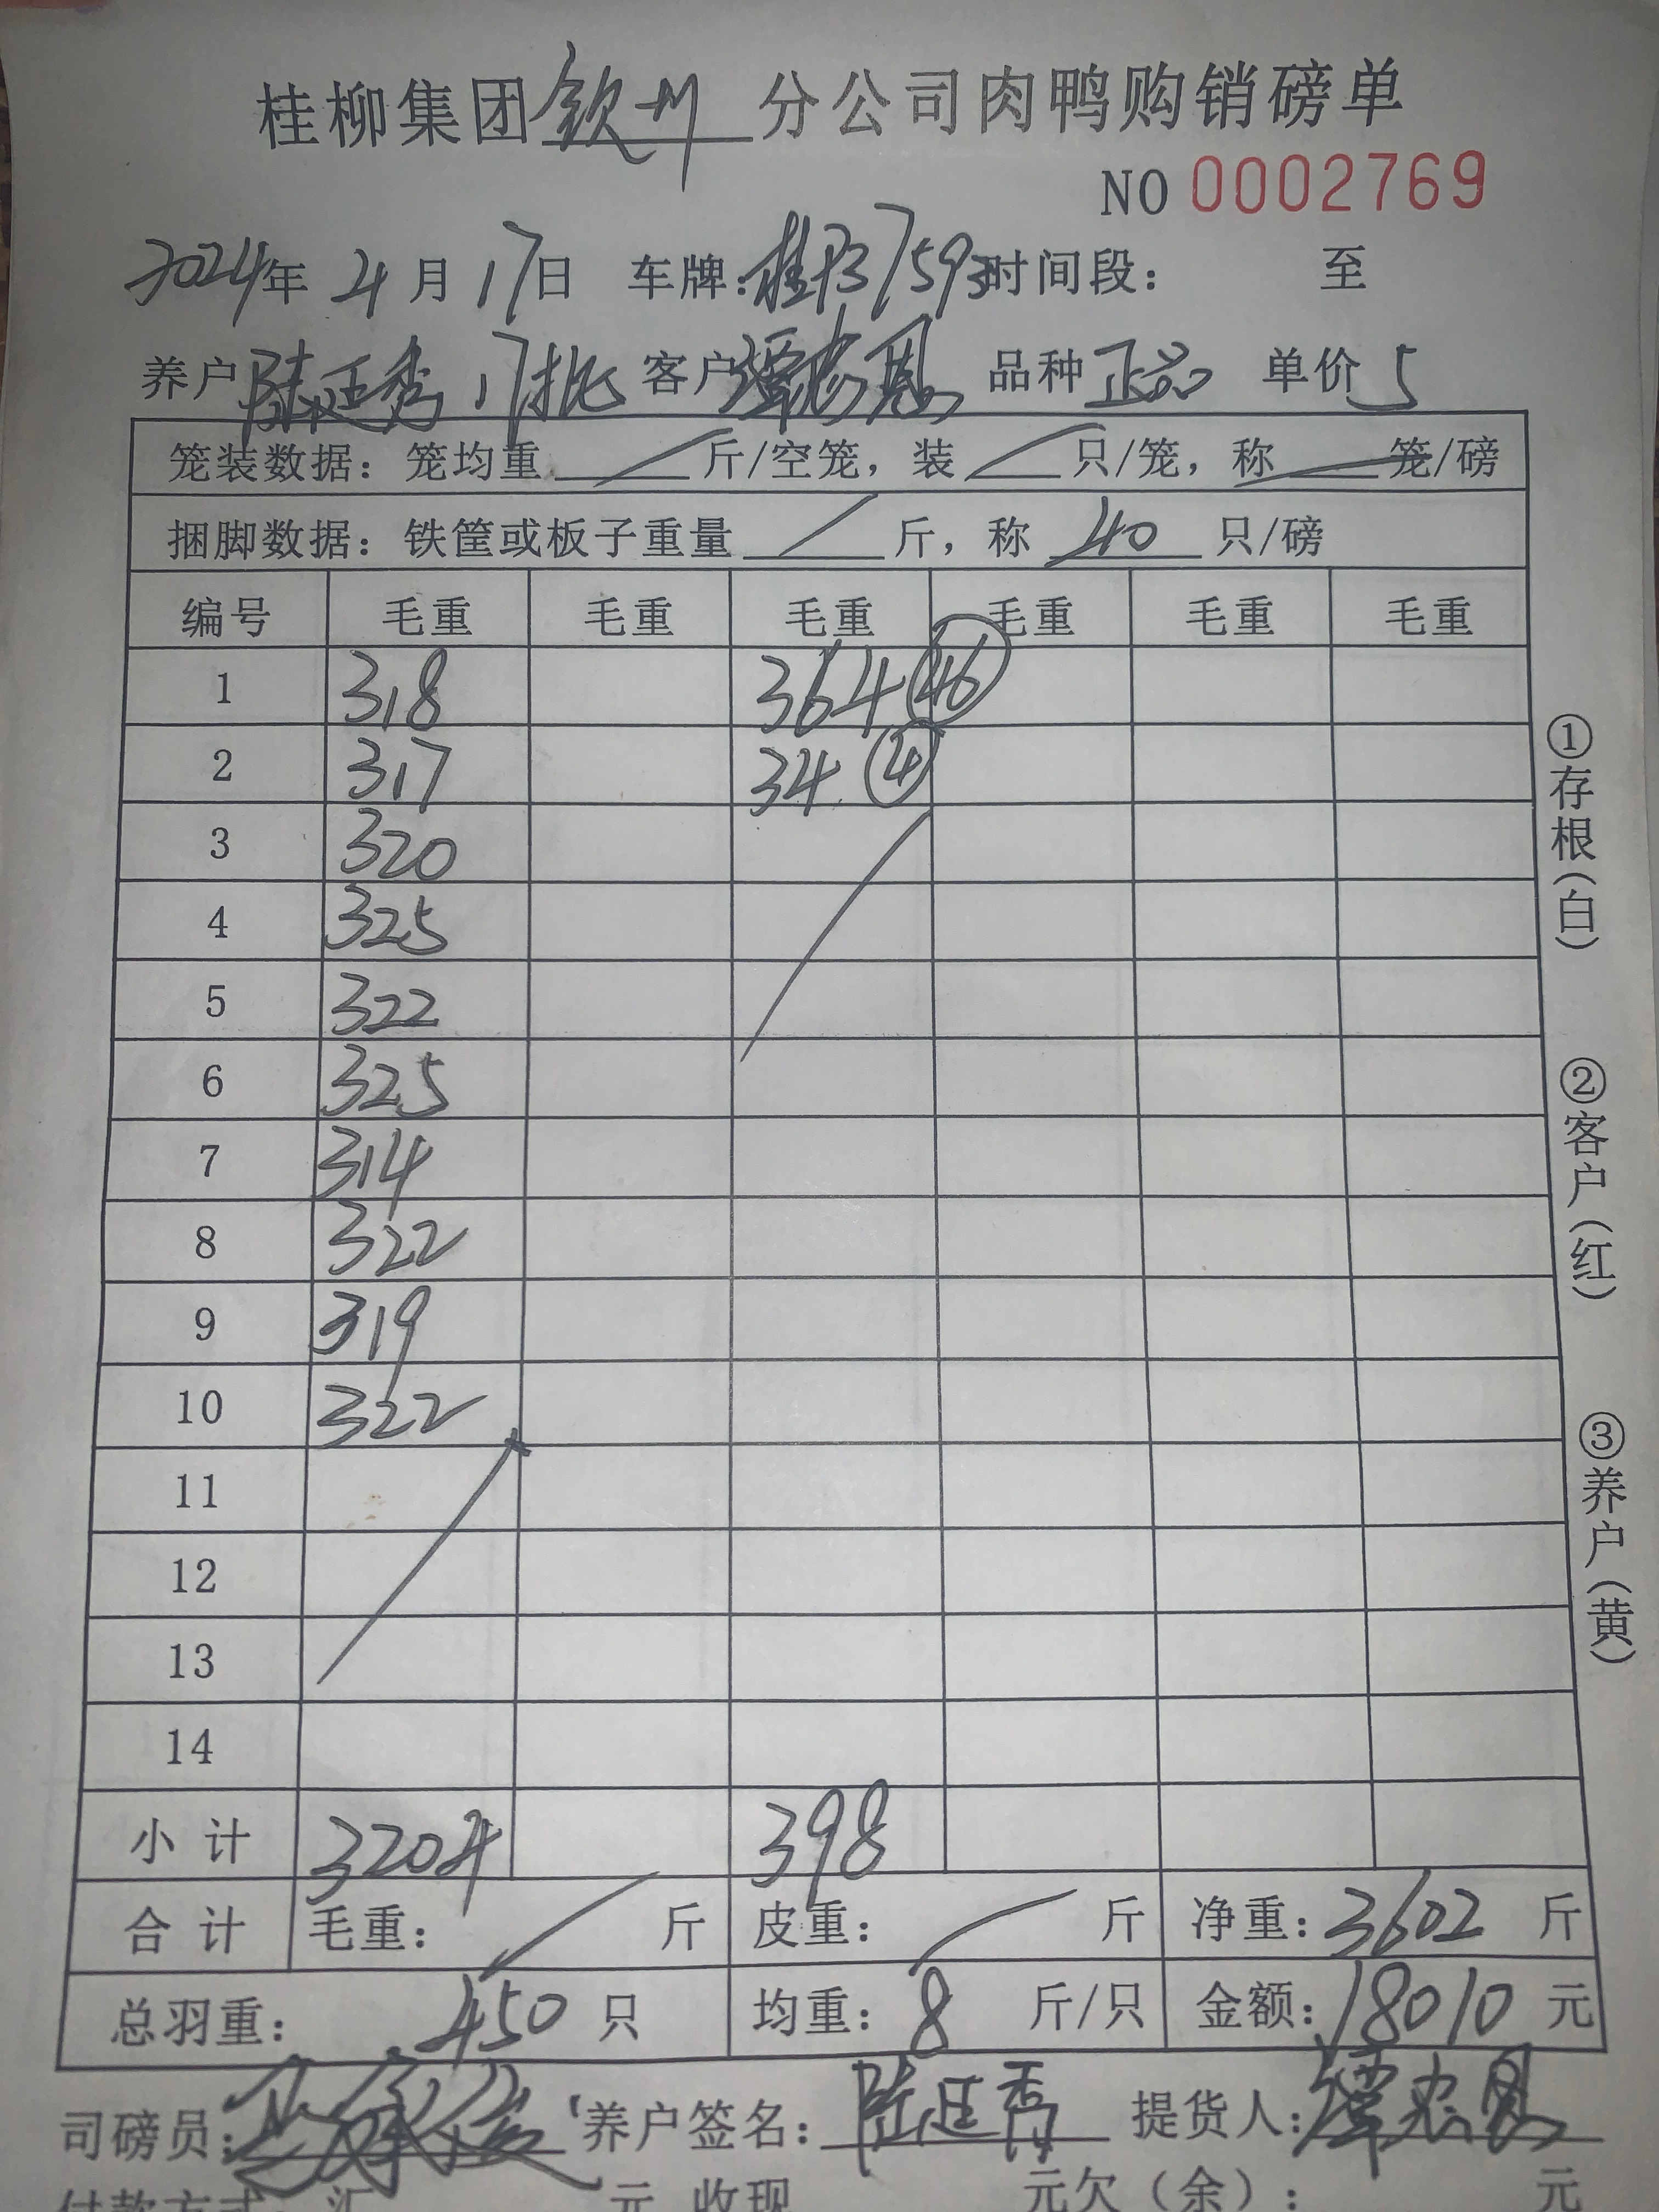 桂柳集团钦州分公司肉鸭购销磅单
NO 0002769
2024年 4月 17日 车牌:桂P37593时间段: 至
养户陆廷秀 17批 客户谭忠恩 品种正品 单价5
笼装数据:笼均重 / 斤/空笼,装 / 只/笼,称 — 笼/磅
捆脚数据:铁筐或板子重量 / 斤,称 40 只/磅
编号 毛重 毛重 毛重 毛重 毛重 毛重
1 318 364 46
2 317 34 4
3 320
4 325
5 322
6 325
7 314
8 322
9 319
10 322
11
12
13
14
小计 3204 398
合计 毛重: / 斤 皮重: / 斤 净重:3602 斤
总羽重: 450 只 均重:8 斤/只 金额:18010 元
司磅员: 养户签名:陆廷秀 提货人:谭忠恩
付款方式:汇 元 收现 元欠(余): 元
①存根(白)
②客户(红)
③养户(黄)